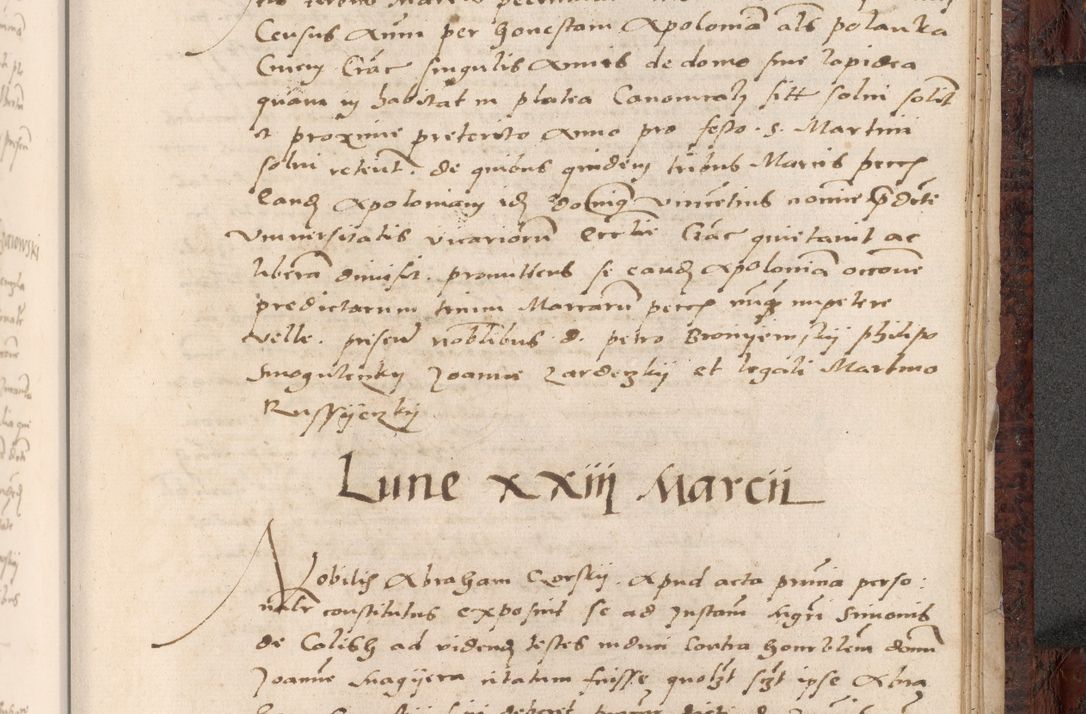 Census Annui per honestam Apoloniã als polanka
Civem Crac singulis Annis de domo sive lapidea
quam in habitat in platea Canonicali sitt solui solit
et proxime preterito Anno pro festo S. Martini
solui retent. de quibus quidem tribus Marcis pecc
Eand Apoloniam id dominq vincetius nomine pdicte
universitatis vicariorum Eccliae Crac quietavit ac
libera dimisit. promittens se eand Apoloniã occone
predictarum trium Marcarũ pecc nunq impetere
velle. presen noblibus d. petro Bronyewskij philipo
Smogulenskij Joanne Zardeczkij et legali Martino
Russyeczkij
Lune xxiij Marcii
Nobilis Abraham Czorskij. Apud acta prima perso:
nalr constitutus exposuit se ad Instam Mgri Simonis
de Calish ad videnđ testes induci Contra honorblem domũ
Joannẽ Magyera citatum fuisse quolzt szt ipse Abra